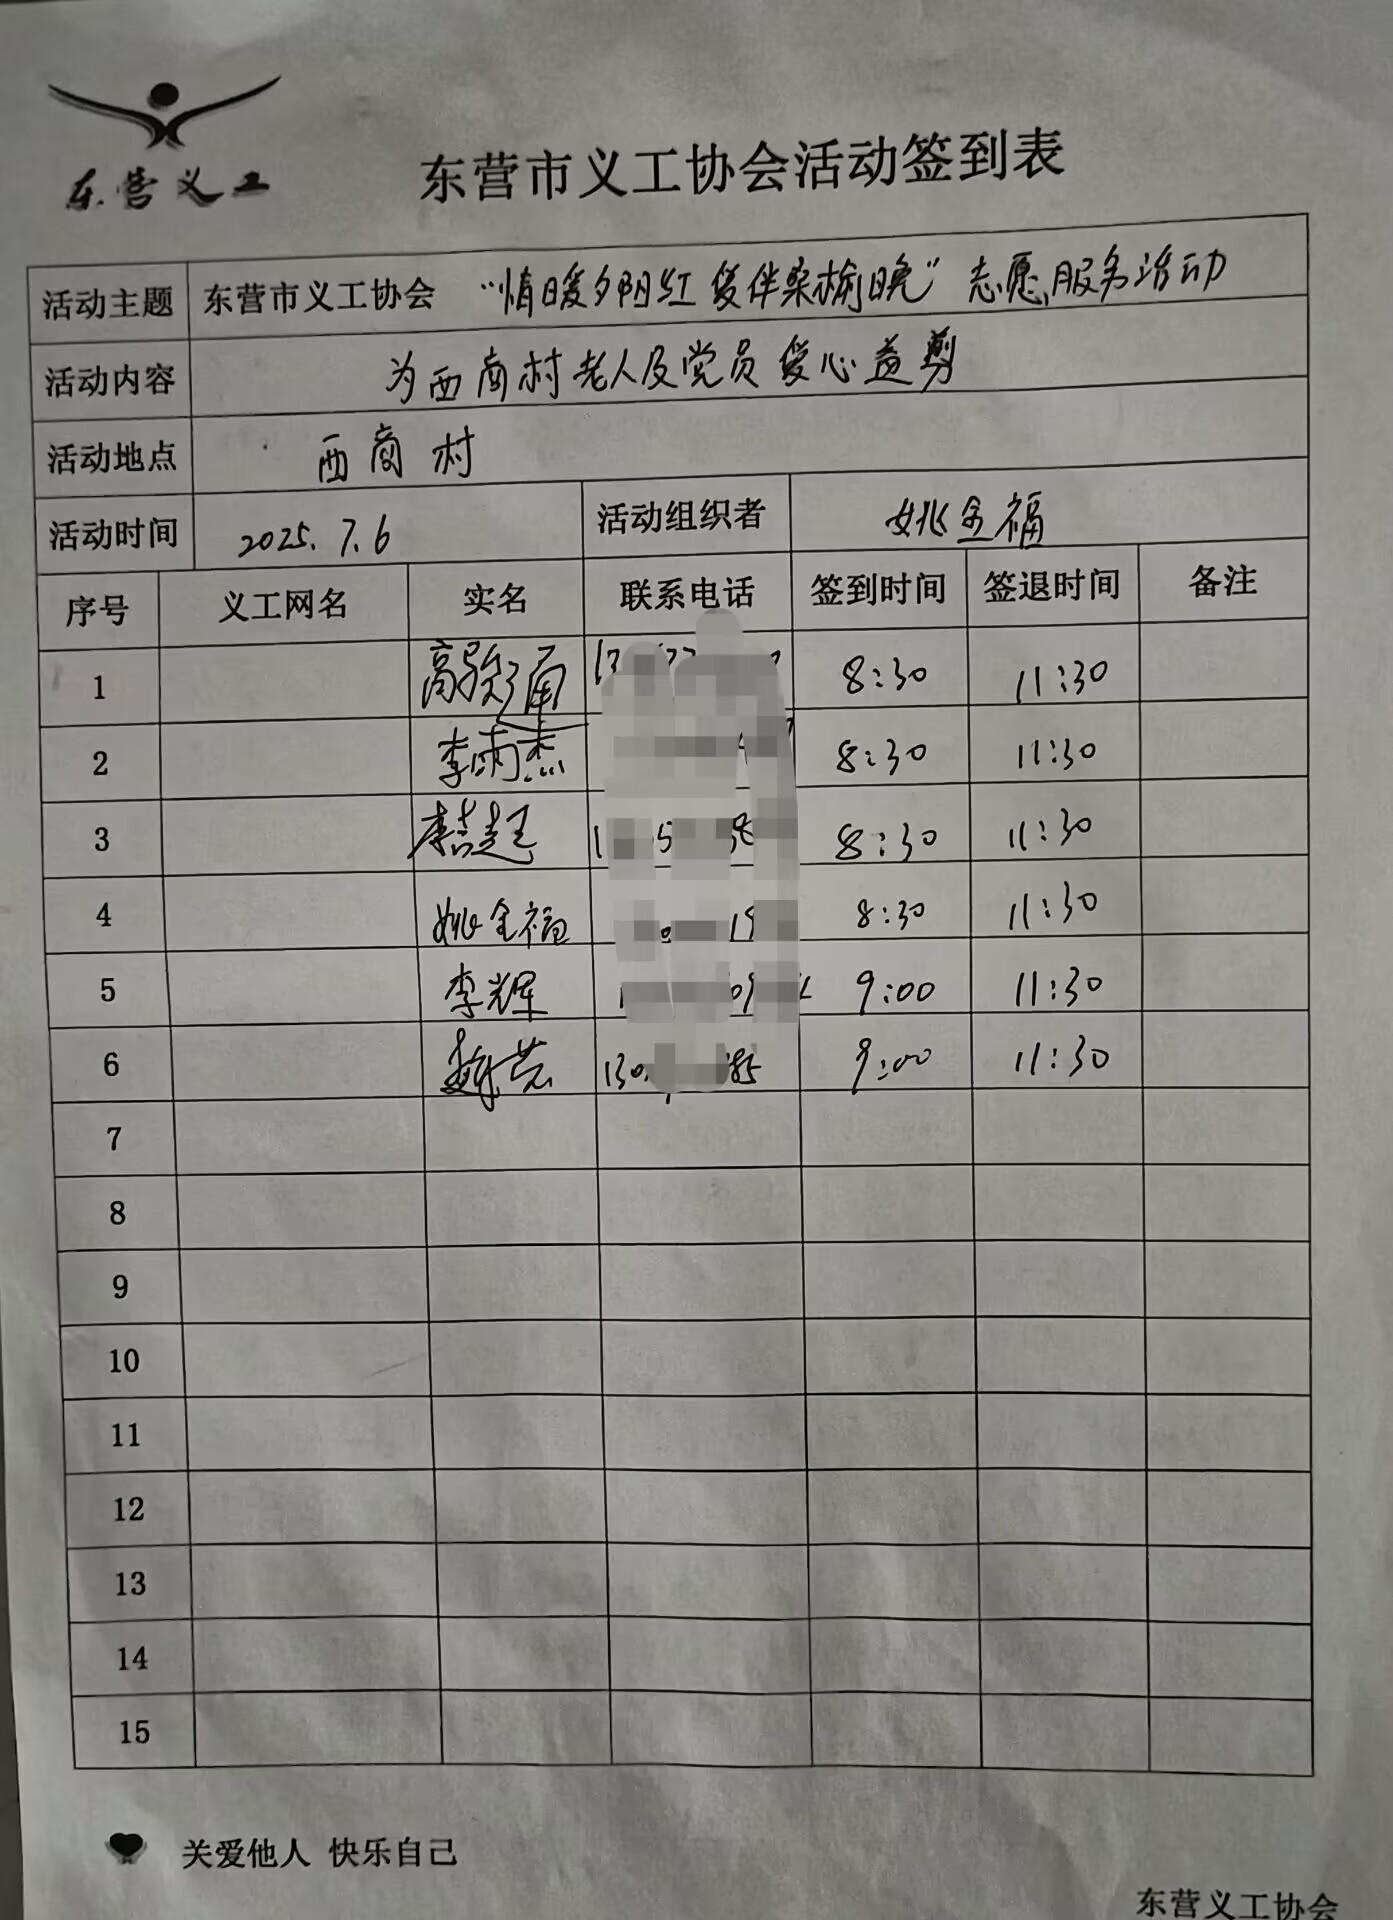 东营义工
东营市义工协会活动签到表
活动主题 东营市义工协会 “情暖夕阳红 爱伴桑榆晚” 志愿服务活动
活动内容 为西商村老人及党员爱心益剪
活动地点 西商村
活动时间 2025.7.6 活动组织者 姚金福
序号 义工网名 实名 联系电话 签到时间 签退时间 备注
1 8:30 11:30
2 李雨杰 8:30 11:30
3 8:30 11:30
4 姚金福 8:30 11:30
5 李辉 9:00 11:30
6 9:00 11:30
7
8
9
10
11
12
13
14
15
关爱他人 快乐自己
东营义工协会